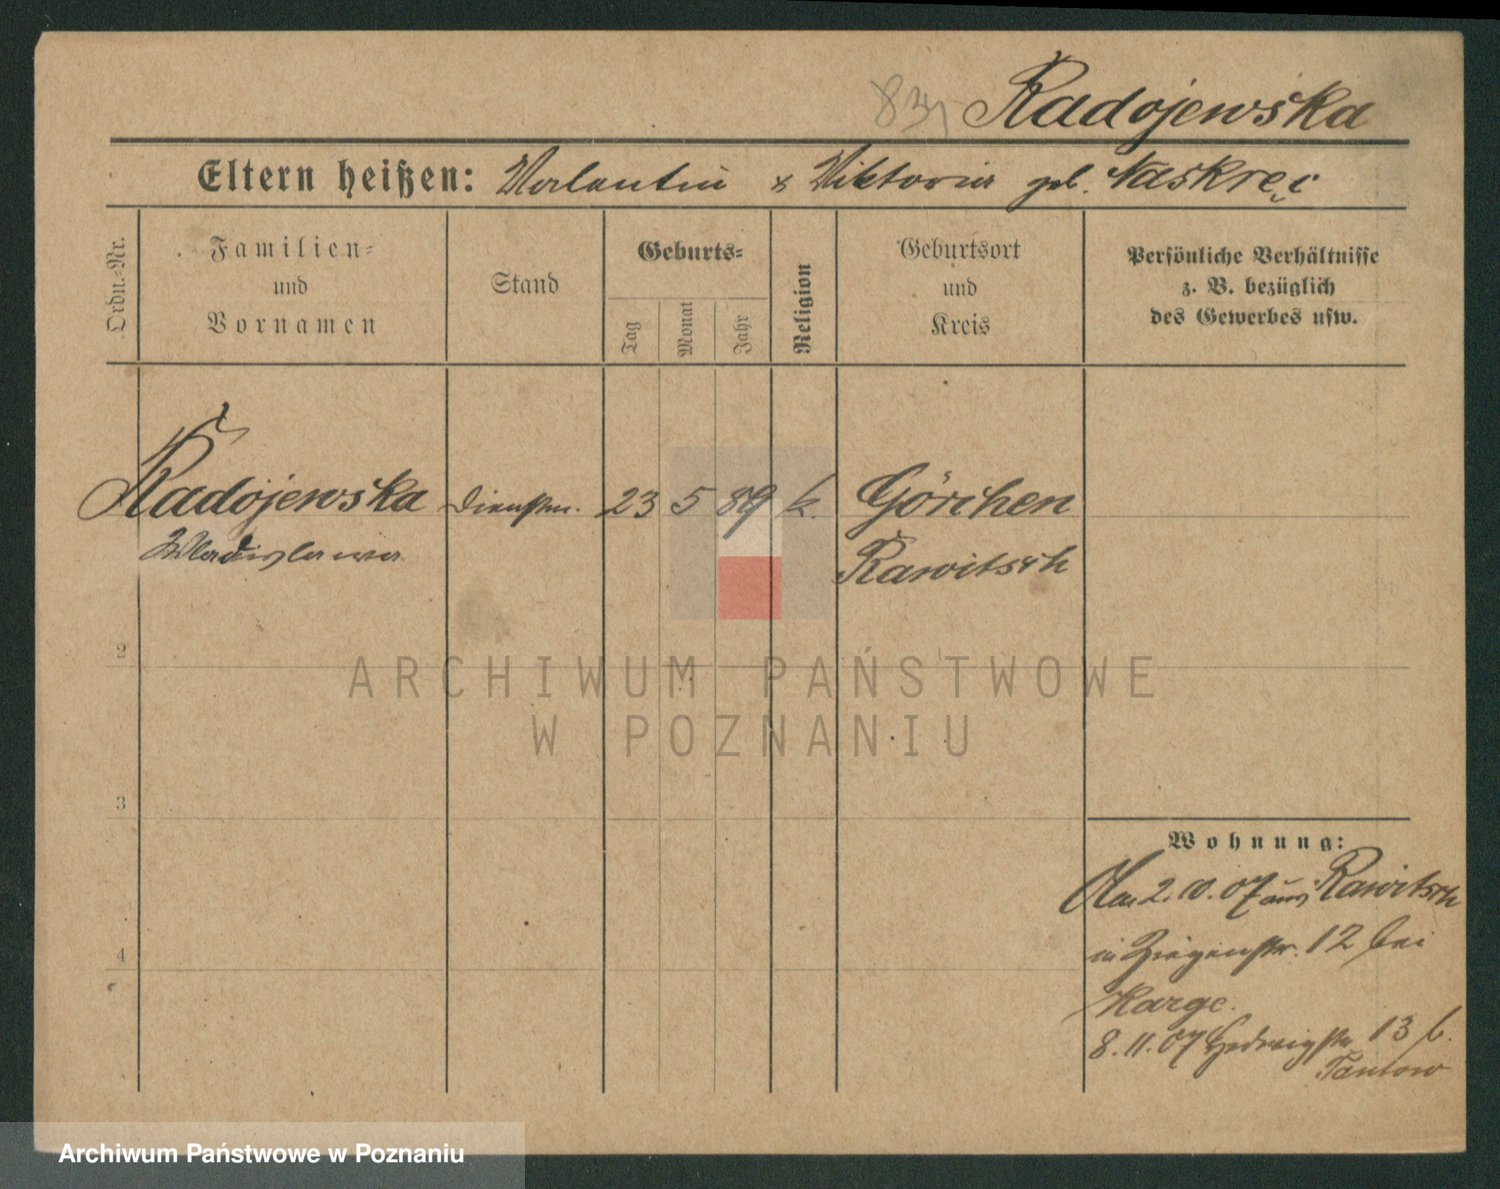 83 Radojewska
Eltern heißen: Valentin & Viktoria geb. Naskręc
Ordn.-Nr.
Familien-
und
Vornamen
Stand
Geburts-
Tag
Monat
Jahr
Religion
Geburtsort
und
Kreis
Persönliche Verhältnisse
z. B. bezüglich
des Gewerbes usw.
Radojewska Dienstm. 23 5 89 k. Görchen
Wladislawa Rawitsch
2
3
4
Wohnung:
2.10.07 aus Rawitsch
in Ziegenstr. 12 bei
Karge.
8.11.07 Hedwigstr. 13 b.
Tantow
ARCHIWUM PAŃSTWOWE
W POZNANIU
Archiwum Państwowe w Poznaniu